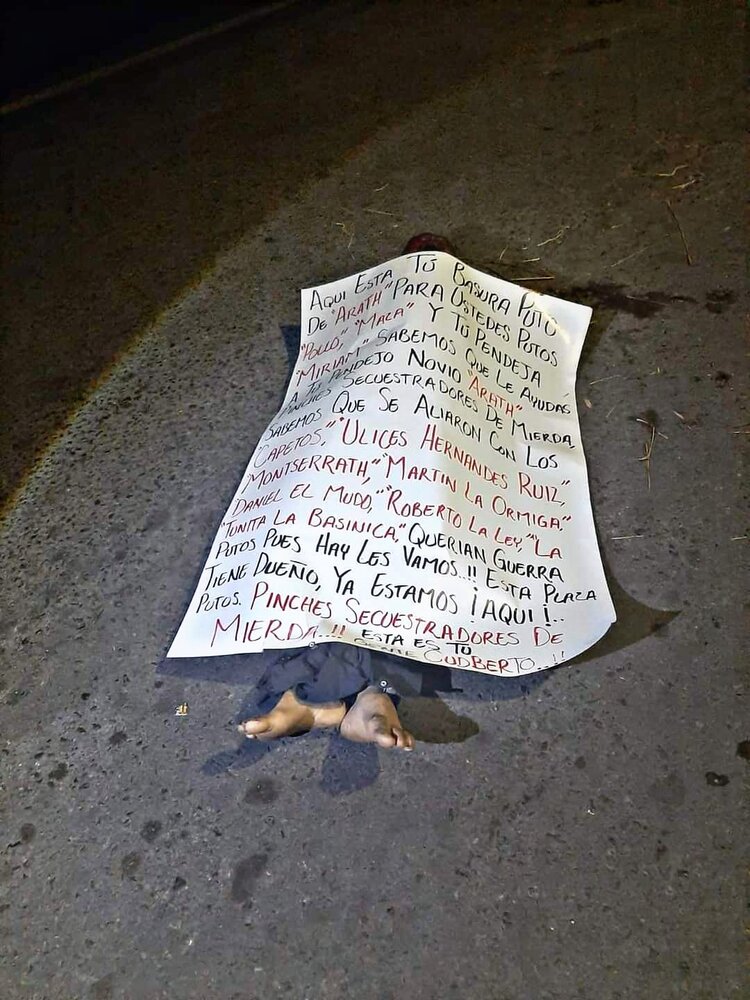 AQUI ESTA TÚ BASURA PUTO
DE "ARATH" PARA USTEDES PUTOS
"POLLO," "MACA" Y TÚ PENDEJA
"MIRIAM" SABEMOS QUE LE AYUDAS
A TÚ PENDEJO NOVIO "ARATH"
PINCHES SECUESTRADORES DE MIERDA,
SABEMOS QUE SE ALIARON CON LOS
"CAPETOS," "ULICES HERNANDES RUIZ,"
"MONTSERRATH," "MARTIN LA ORMIGA"
DANIEL EL MUDO," "ROBERTO LA LEY," "LA
TUNITA LA BASINICA," QUERIAN GUERRA
PUTOS PUES HAY LES VAMOS..!! ESTA PLAZA
TIENE DUEÑO, YA ESTAMOS ¡AQUI!..
PUTOS. PINCHES SECUESTRADORES DE
MIERDA...!! ESTA ES TÚ
GENTE CUDBERTO...!!